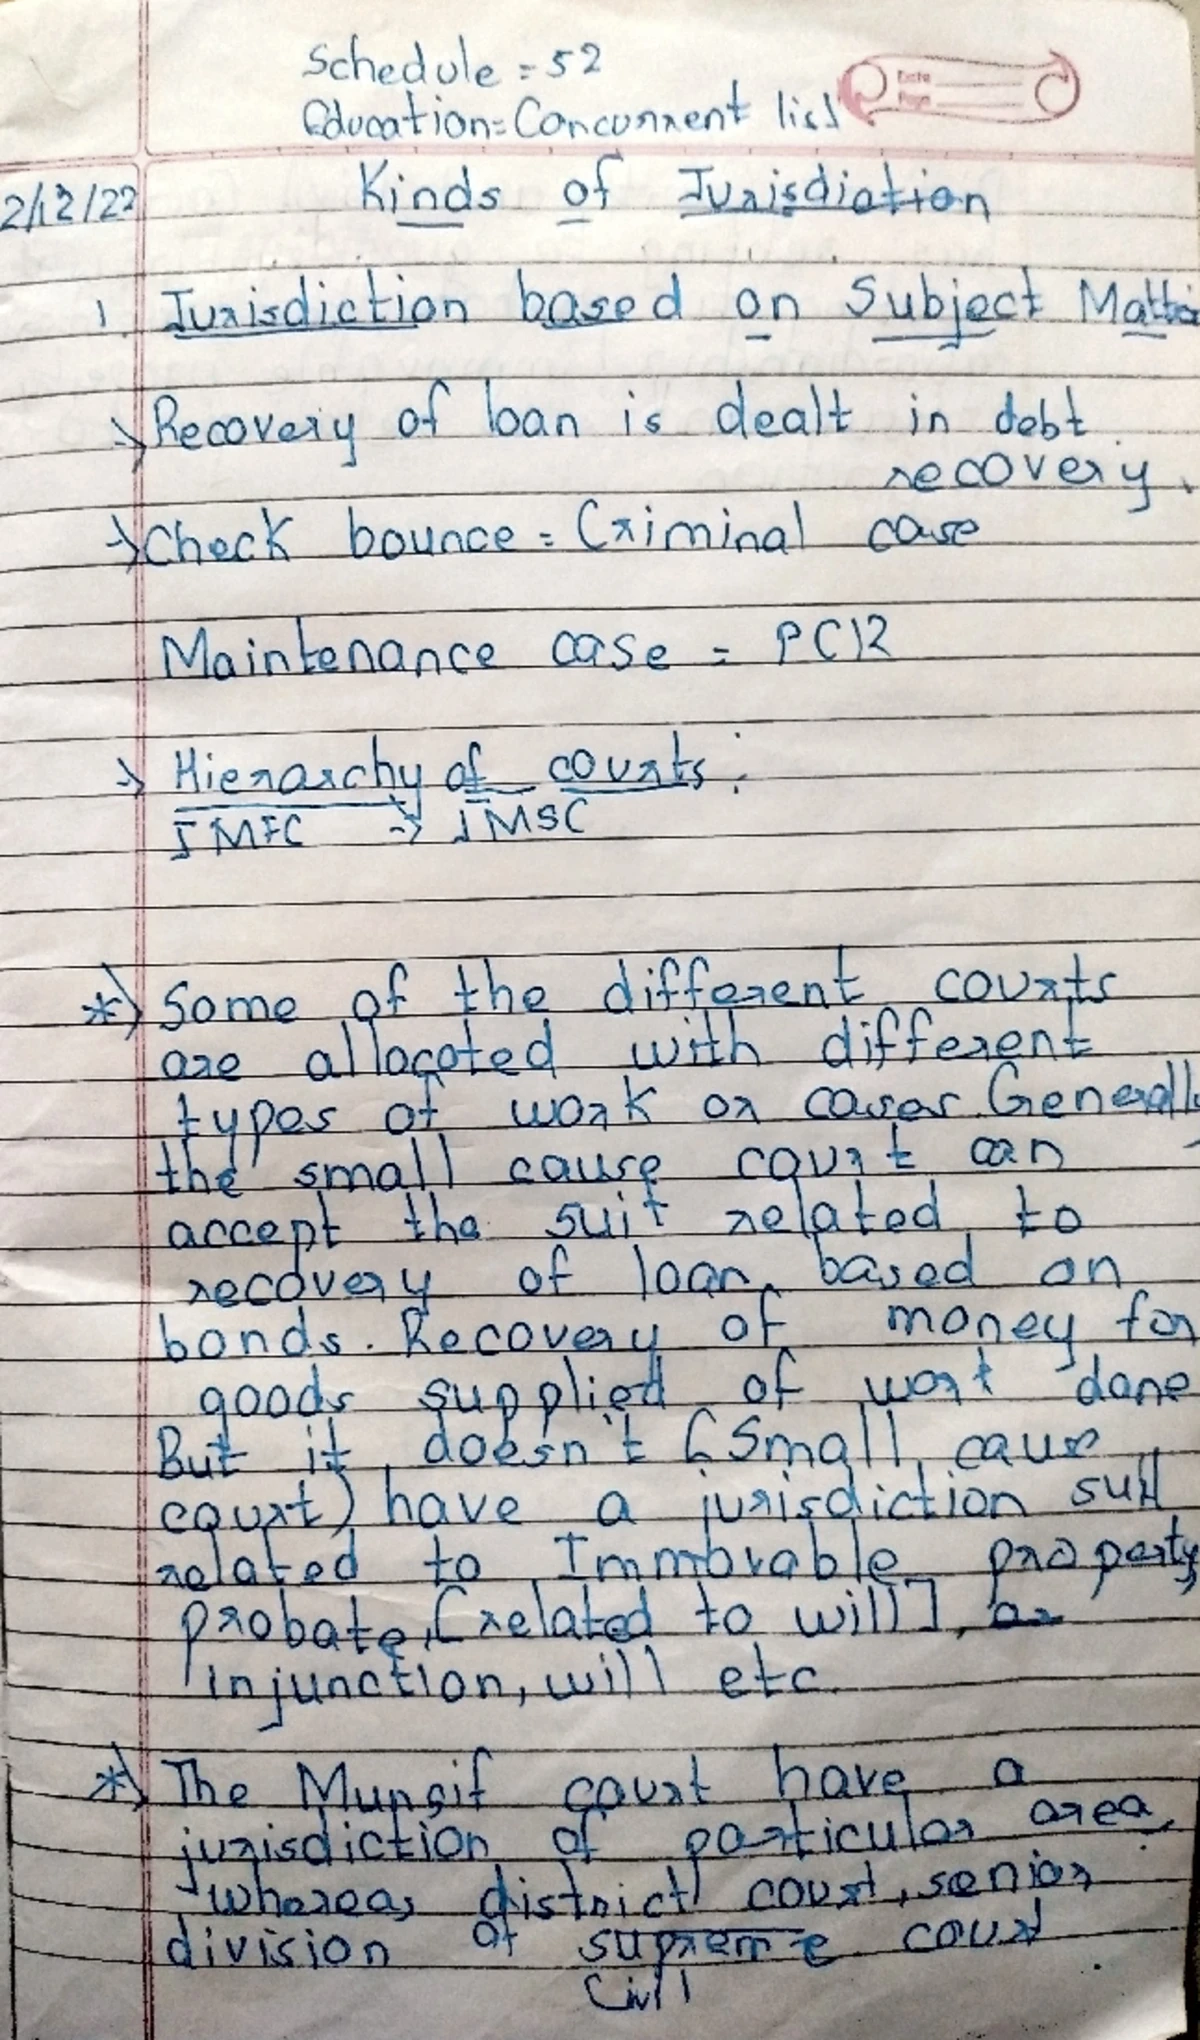 Schedule = 52
Education = Concurrent list
Date
Page
2/12/22
Kinds of Jurisdiction
1. Jurisdiction based on Subject Matter
→ Recovery of loan is dealt in debt
recovery.
→ Check bounce = Criminal case
Maintenance case = PC12
→ Hierarchy of courts:
JMFC → JMSC
*) Some of the different courts
are allocated with different
types of work or cases. Generally
the small cause court can
accept the suit related to
recovery of loan, based on
bonds. Recovery of money for
goods supplied of wort done
But it doesn't (Small cause
court) have a jurisdiction suit
related to Immovable property
probate, [related to will], or
injunction, will etc.
*) The Munsif court have a
jurisdiction of particular area,
whereas district court, senior
division of supreme court
Civil